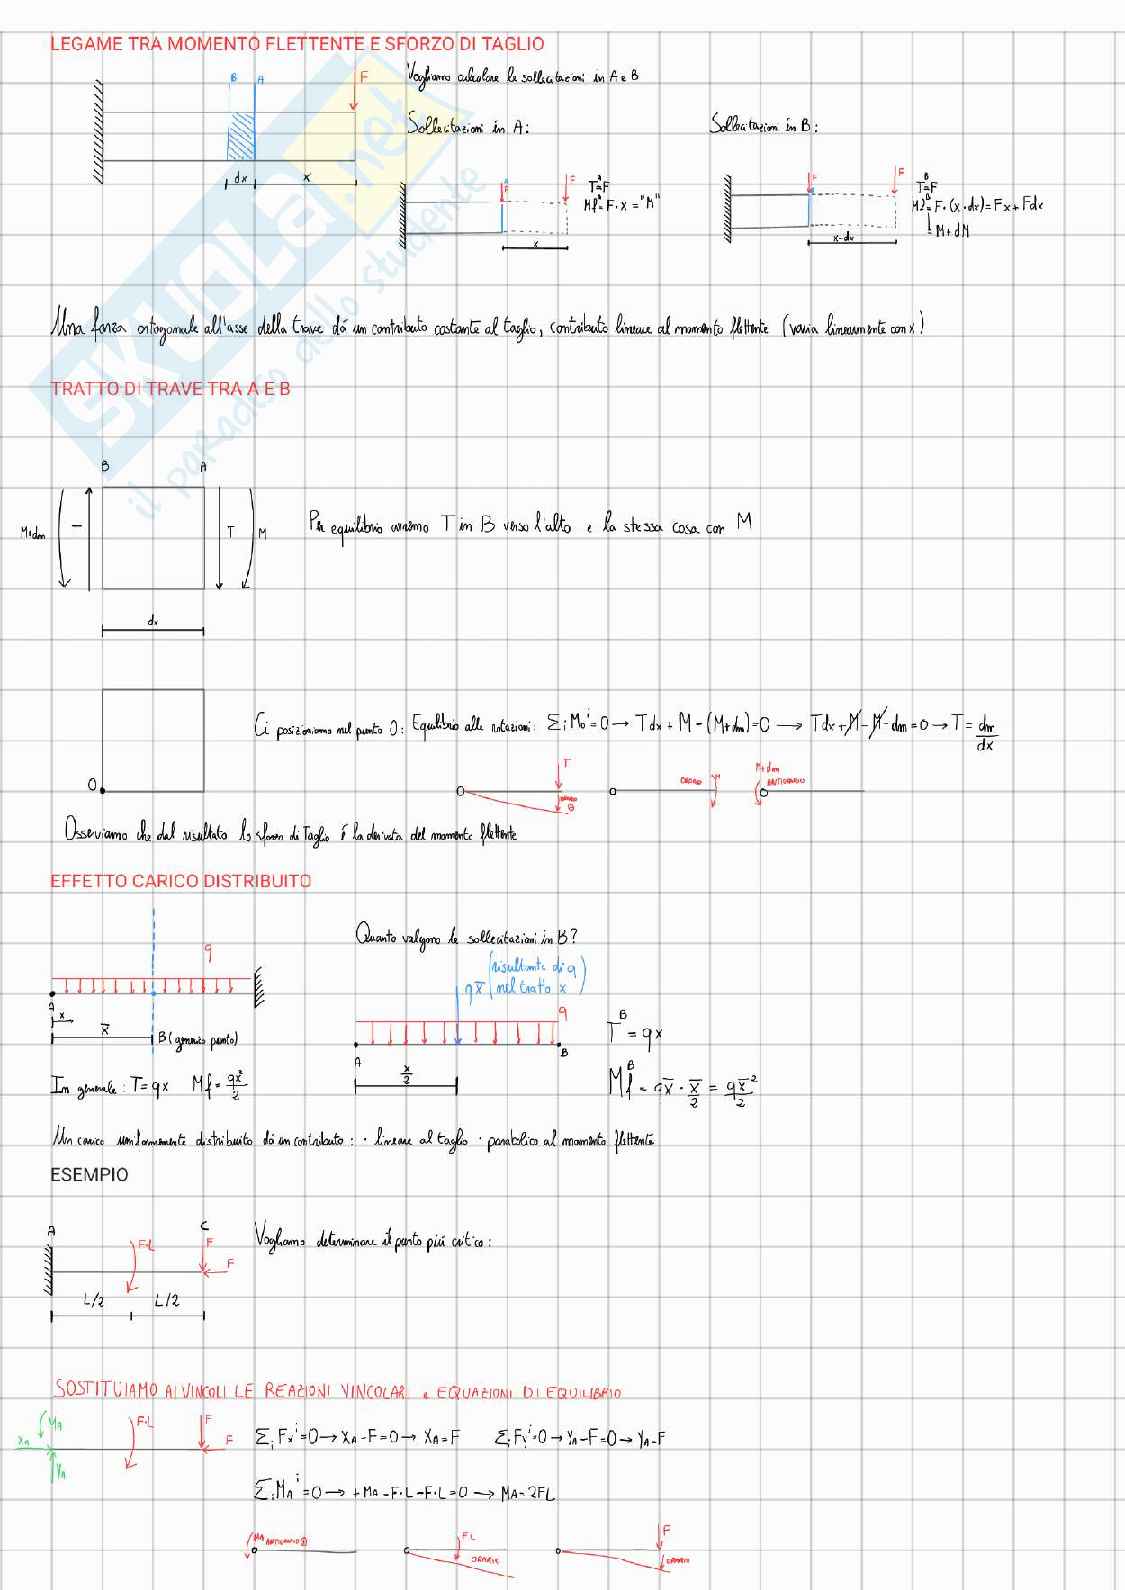 LEGAME TRA MOMENTO FLETTENTE E SFORZO DI TAGLIO
Vogliamo calcolare le sollecitazioni in A e B
B A F
Sollecitazioni in A:
Sollecitazioni in B:
dx x
F F
T^A=F
Mf^A=F·x="M"
x
F F
T^B=F
Mf^B=F·(x·dx)=Fx+Fdx
=M+dM
x-dx
SKUOLA.net
il paradiso dello studente
Una forza ortogonale all'asse della trave dá un contributo costante al taglio, contributo lineare al momento flettente (varia linearmente con x)
TRATTO DI TRAVE TRA A E B
B A
M+dm T M
Per equilibrio avremo T in B verso l'alto e la stessa cosa con M
dx
Ci posizioniamo nel punto O: Equilibrio alle rotazioni: Σi Mo^i=0 → Tdx + M - (M+dm)=0 → Tdx+M-M-dm=0 → T= dm/dx
O
T ORARIO
ORARIO M
M+dm ANTIORARIO
Osserviamo che dal risultato lo sforzo di Taglio é la derivata del momento flettente
EFFETTO CARICO DISTRIBUITO
Quanto valgono le sollecitazioni in B?
q
A x
x̄ B (generico punto)
qx̄ (risultante di q nel tratto x)
q
A B
x̄/2
T^B = qx
Mf^B = qx̄ · x̄/2 = qx̄²/2
In generale: T=qx Mf= qx²/2
Un carico uniformemente distribuito dá un contributo: · lineare al taglio · parabolico al momento flettente
ESEMPIO
A C
F·L F F
L/2 L/2
Vogliamo determinare il punto piú critico:
SOSTITUIAMO AI VINCOLI LE REAZIONI VINCOLARI e EQUAZIONI DI EQUILIBRIO
XA YA F·L F F
Σi Fx^i=0 → XA-F=0 → XA=F Σi Fy^i=0 → YA-F=0 → YA=F
Σi MA^i=0 → +MA-F·L-F·L=0 → MA=2FL
MA ANTIORARIO
FL ORARIO
F ORARIO